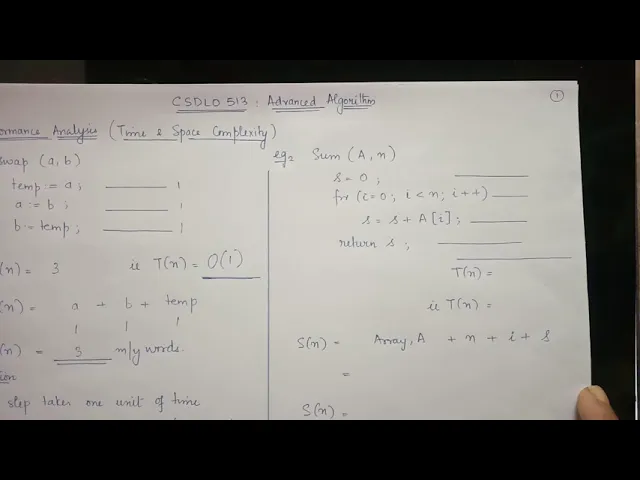 CSDLO 513 : Advanced Algorithm
1
ormance Analysis (Time & Space Complexity)
swap (a, b)
temp := a ; 1
a := b ; 1
b := temp ; 1
(n) = 3 ie T(n) = O(1)
(n) = a + b + temp
1 1 1
(n) = 3 m/y words.
tion
step takes one unit of time
eg2 Sum (A, n)
s = 0 ;
for (i = 0 ; i < n ; i++)
s = s + A[i] ;
return s ;
T(n) =
ie T(n) =
S(n) = Array, A + n + i + s
=
S(n) =